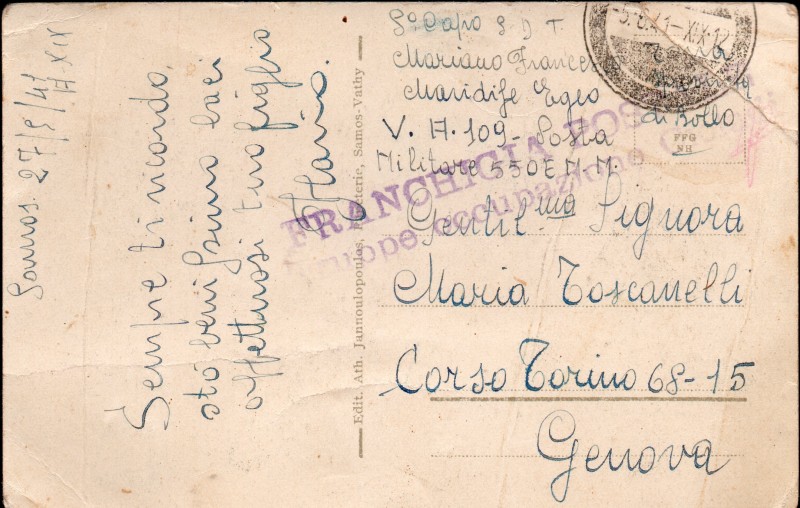 Samos. 27/5/41
A XIX
Sempre ti ricordo,
stò benissimo baci
affettuosi tuo figlio
Flavio.
Edit. Ath. Jannoulopoulos, Samos-Vathy
Sº Capo S D T
Mariano Frances
Maridife Egeo
V. A. 109 - Posta
Militare 550 E M.M.
5.6.41-XIX.12
di Bollo
FFG
NH
FRANCHIGIA POS
truppe occupazione
Gentil.ma Signora
Maria Toscanelli
Corso Torino 68-15
Genova